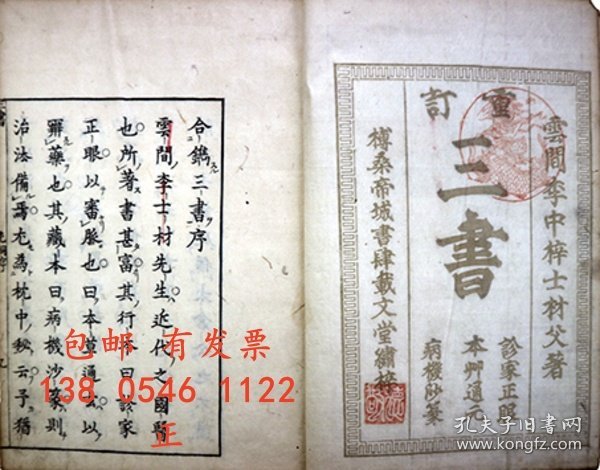 重訂
雲間李中梓士材父著
三書
診家正
本艸通元
病機砂篆
榑桑帝城書肆載文堂繡梓
合鐫三書序
雲間李士材先生近代之國醫
也所著書甚富其行塔曰診家
正眼以審脈也曰本草通以
羅藥也其藏本曰病機沙篆則
治法備焉尤為枕中秘云予猶
包邮 有发票
138 0546 1122
正
孔夫子旧书网
www.kongfz.com